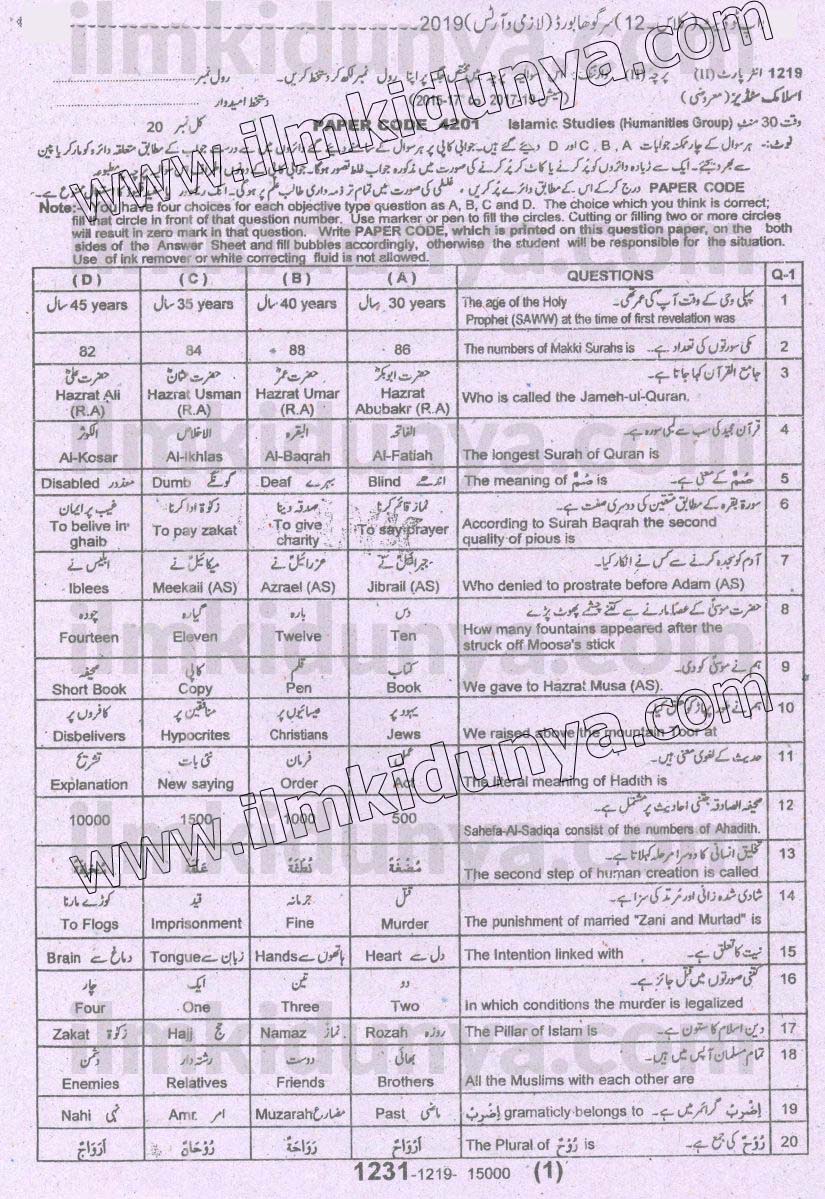 سرگودھا بورڈ (لازمی و آرٹس) 2019
1219 انٹر پارٹ (II) پرچہ (II) رول نمبر
اسلامک سٹڈیز (معروضی) دستخط امیدوار
وقت 30 منٹ Islamic Studies (Humanities Group) PAPER CODE 4201 کل نمبر 20
www.ilmkidunya.com
Note:- You have four choices for each objective type question as A, B, C and D. The choice which you think is correct;
fill that circle in front of that question number. Use marker or pen to fill the circles. Cutting or filling two or more circles
will result in zero mark in that question. Write PAPER CODE, which is printed on this question paper, on the both
sides of the Answer Sheet and fill bubbles accordingly, otherwise the student will be responsible for the situation.
Use of ink remover or white correcting fluid is not allowed.
( D ) ( C ) ( B ) ( A ) QUESTIONS Q-1
پہلی وحی کے وقت آپ کی عمر تھی۔ 1
45 years سال 35 years سال 40 years سال 30 years سال The age of the Holy
Prophet (SAWW) at the time of first revelation was
82 84 88 86 The numbers of Makki Surahs is مکی سورتوں کی تعداد ہے۔ 2
حضرت علیؓ حضرت عثمانؓ حضرت عمرؓ حضرت ابوبکرؓ جامع القرآن کہا جاتا ہے۔ 3
Hazrat Ali (R.A) Hazrat Usman (R.A) Hazrat Umar (R.A) Hazrat Abubakr (R.A) Who is called the Jameh-ul-Quran.
الکوثر الاخلاص البقرہ الفاتحہ قرآن مجید کی سب سے لمبی سورہ ہے۔ 4
Al-Kosar Al-Ikhlas Al-Baqrah Al-Fatiah The longest Surah of Quran is
Disabled معذور Dumb گونگے Deaf بہرے Blind اندھے The meaning of صُمٌّ is صُمٌّ کے معنی ہے۔ 5
غیب پر ایمان زکوٰۃ ادا کرنا صدقہ دینا نماز قائم کرنا سورۃ بقرہ کے مطابق متقین کی دوسری صفت ہے۔ 6
To belive in ghaib To pay zakat To give charity To say prayer According to Surah Baqrah the second
quality of pious is
ابلیس نے میکائیلؑ نے عزرائیلؑ نے جبرائیلؑ نے آدم کو سجدہ کرنے سے کس نے انکار کیا۔ 7
Iblees Meekail (AS) Azrael (AS) Jibrail (AS) Who denied to prostrate before Adam (AS)
چودہ گیارہ بارہ دس حضرت موسیٰؑ کے عصا مارنے سے کتنے چشمے پھوٹ پڑے 8
Fourteen Eleven Twelve Ten How many fountains appeared after the
struck off Moosa's stick
صحیفہ کاپی قلم کتاب ہم نے موسیٰؑ کو دی۔ 9
Short Book Copy Pen Book We gave to Hazrat Musa (AS).
کافروں پر منافقین پر عیسائیوں پر یہود پر 10
Disbelivers Hypocrites Christians Jews We raised above the mountain Toor at
تشریح نئی بات فرمان عمل حدیث کے لغوی معنی ہیں۔ 11
Explanation New saying Order Act The literal meaning of Hadith is
صحیفہ الصادقہ جتنی احادیث پر مشتمل ہے۔ 12
10000 1500 1000 500 Sahefa-Al-Sadiqa consist of the numbers of Ahadith.
عَلَقَةً نُطْفَةً مُضْغَةً تخلیق انسانی کا دوسرا مرحلہ کہلاتا ہے۔ 13
The second step of human creation is called
کوڑے مارنا قید جرمانہ قتل شادی شدہ زانی اور مُرتد کی سزا ہے۔ 14
To Flogs Imprisonment Fine Murder The punishment of married "Zani and Murtad" is
Brain دماغ سے Tongue زبان سے Hands ہاتھوں سے Heart دل سے The Intention linked with نیت کا تعلق ہے۔ 15
چار ایک تین دو کتنی صورتوں میں قتل جائز ہے۔ 16
Four One Three Two In which conditions the murder is legalized
Zakat زکوٰۃ Hajj حج Namaz نماز Rozah روزہ The Pillar of Islam is دین اسلام کا ستون ہے۔ 17
دشمن رشتہ دار دوست بھائی تمام مسلمان آپس میں ہیں۔ 18
Enemies Relatives Friends Brothers All the Muslims with each other are
Nahi نہی Amr. امر Muzarah مضارع Past ماضی gramaticly belongs to اِضْرِبْ گرائمر میں ہے۔ 19
اَزْوَاجٌ رُوْحَانٌ رَوَاحَةٌ اَرْوَاحٌ The Plural of رُوْحٌ is رُوْحٌ کی جمع ہے۔ 20
1231-1219- 15000 (1)